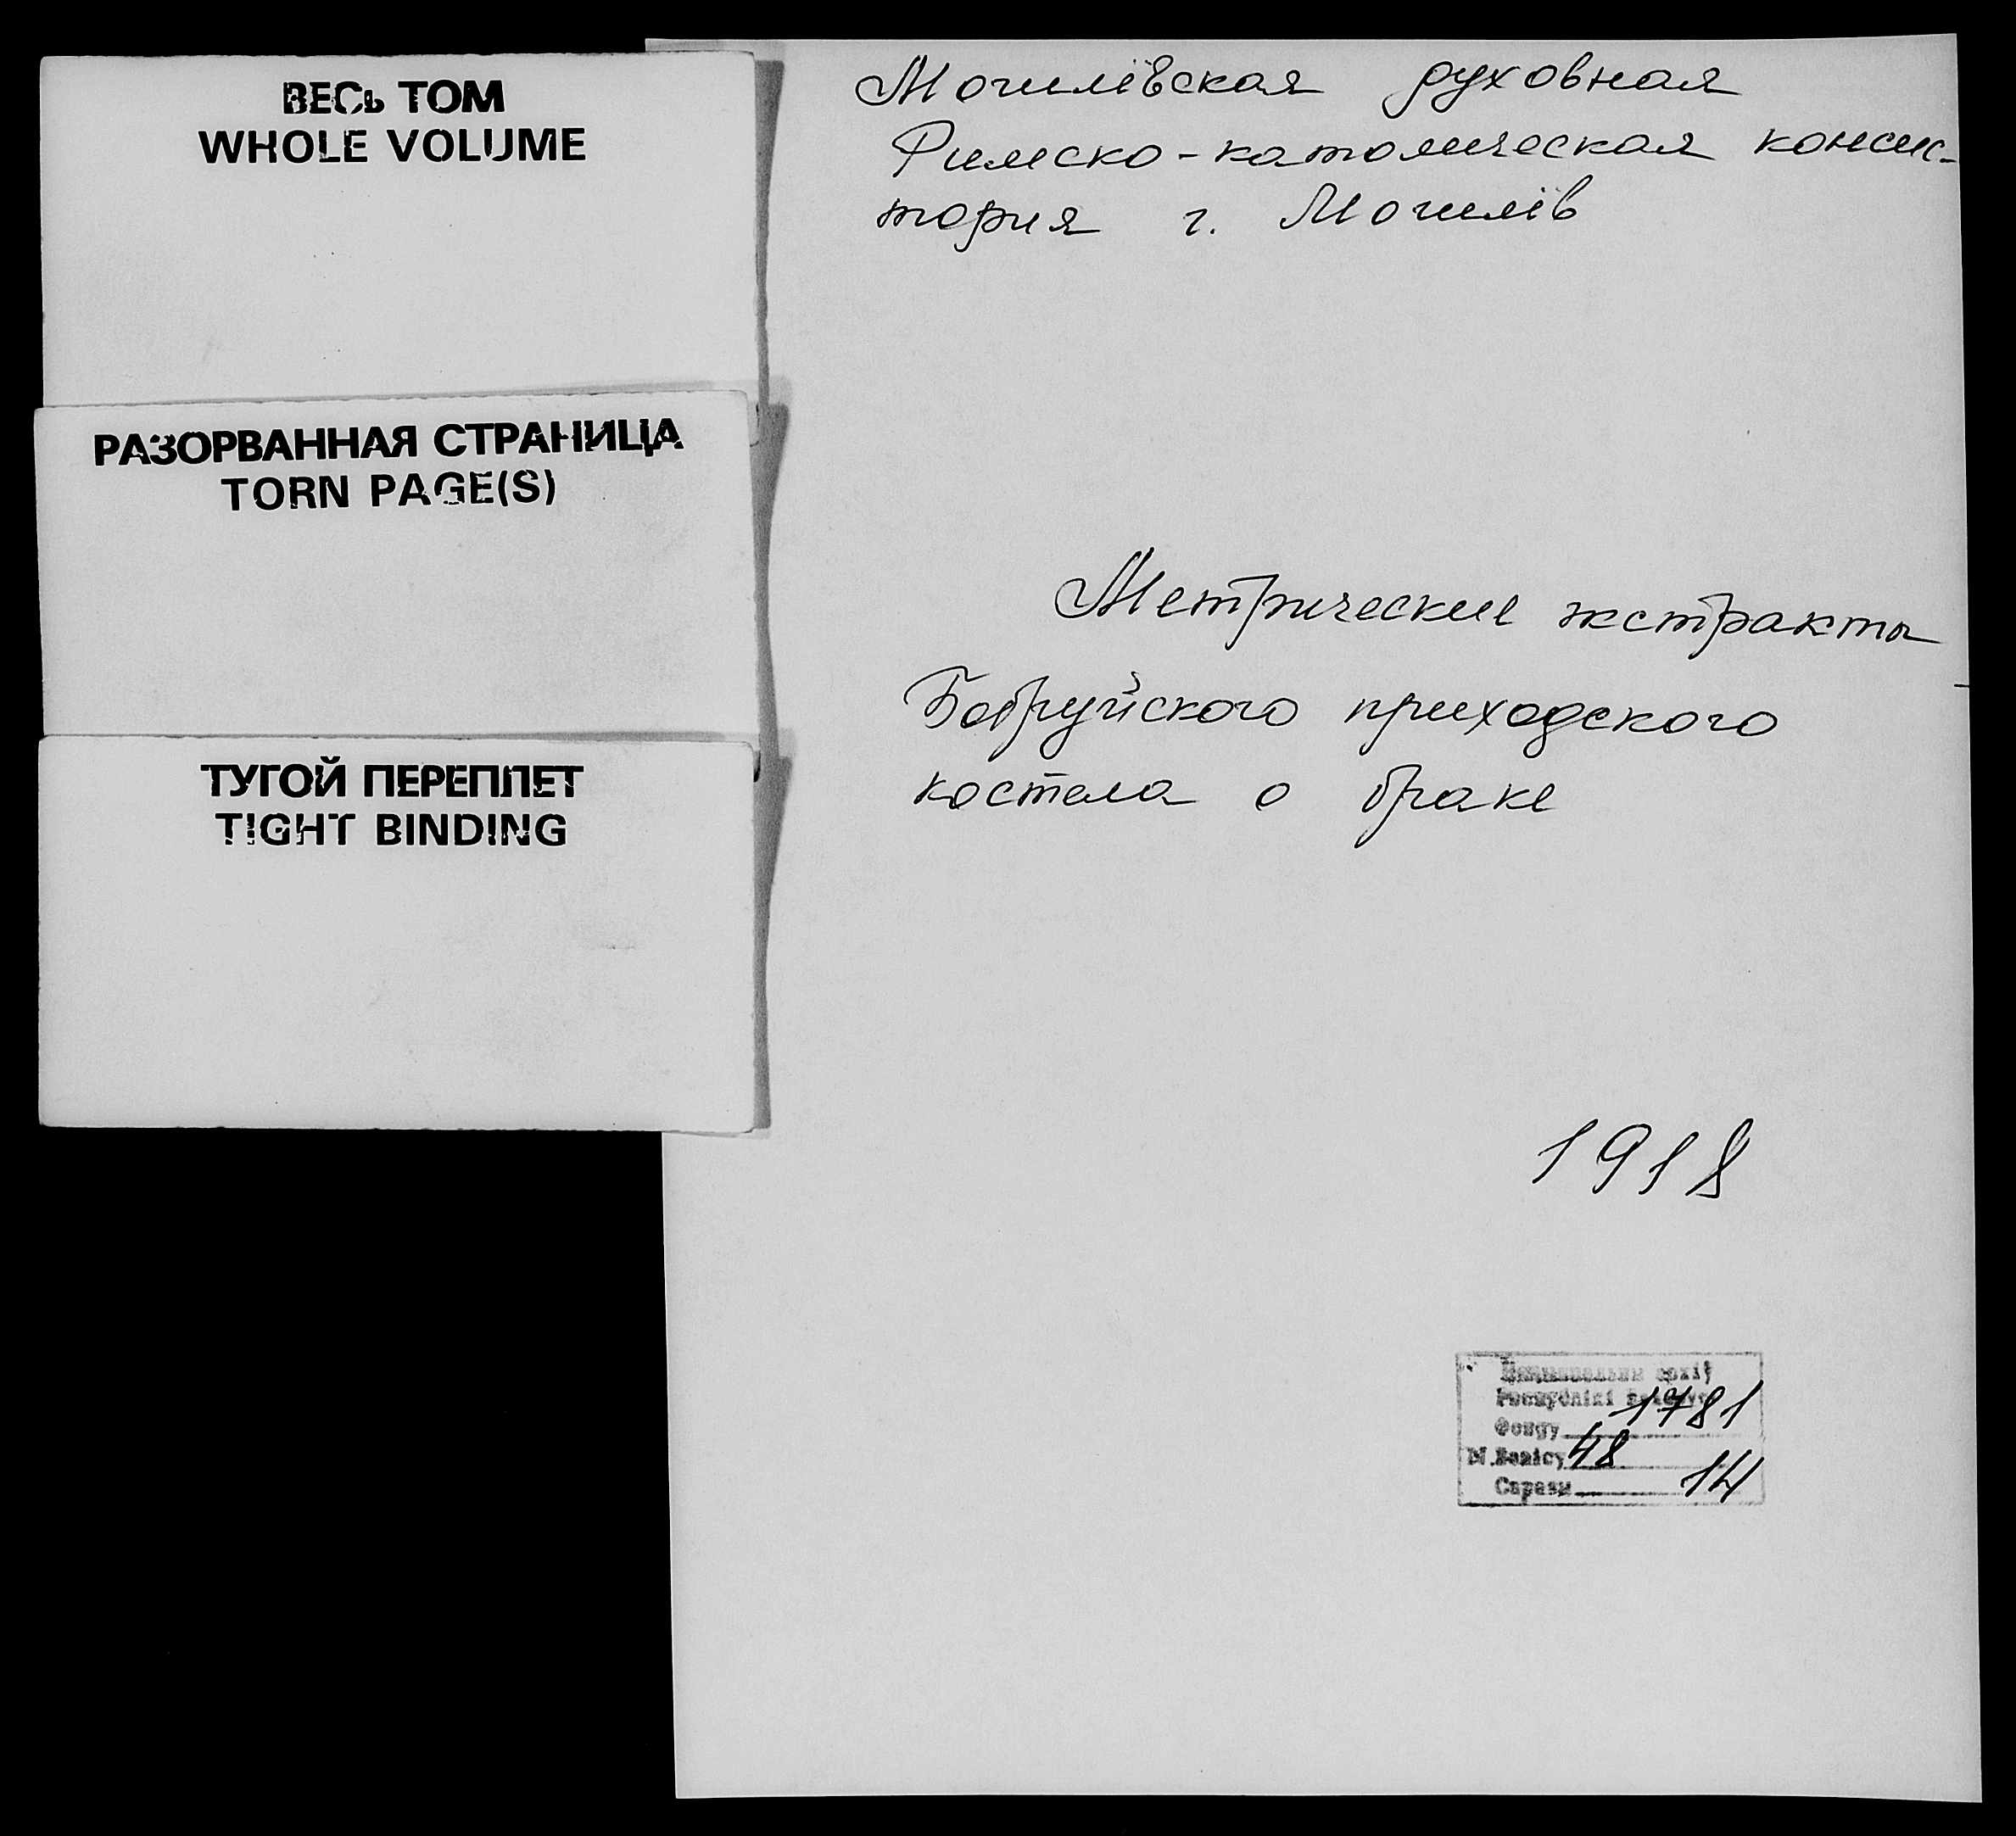 ВЕСЬ ТОМ
WHOLE VOLUME
РАЗОРВАННАЯ СТРАНИЦА
TORN PAGE(S)
ТУГОЙ ПЕРЕПЛЕТ
TIGHT BINDING
Могилёвская духовная
Римско-католическая консис-
тория г. Могилёв
Метрические экстракты
Бобруйского приходского
костела о браке
1918
архіў
Фонду 1781
N.Вопісу 48
Справы 14